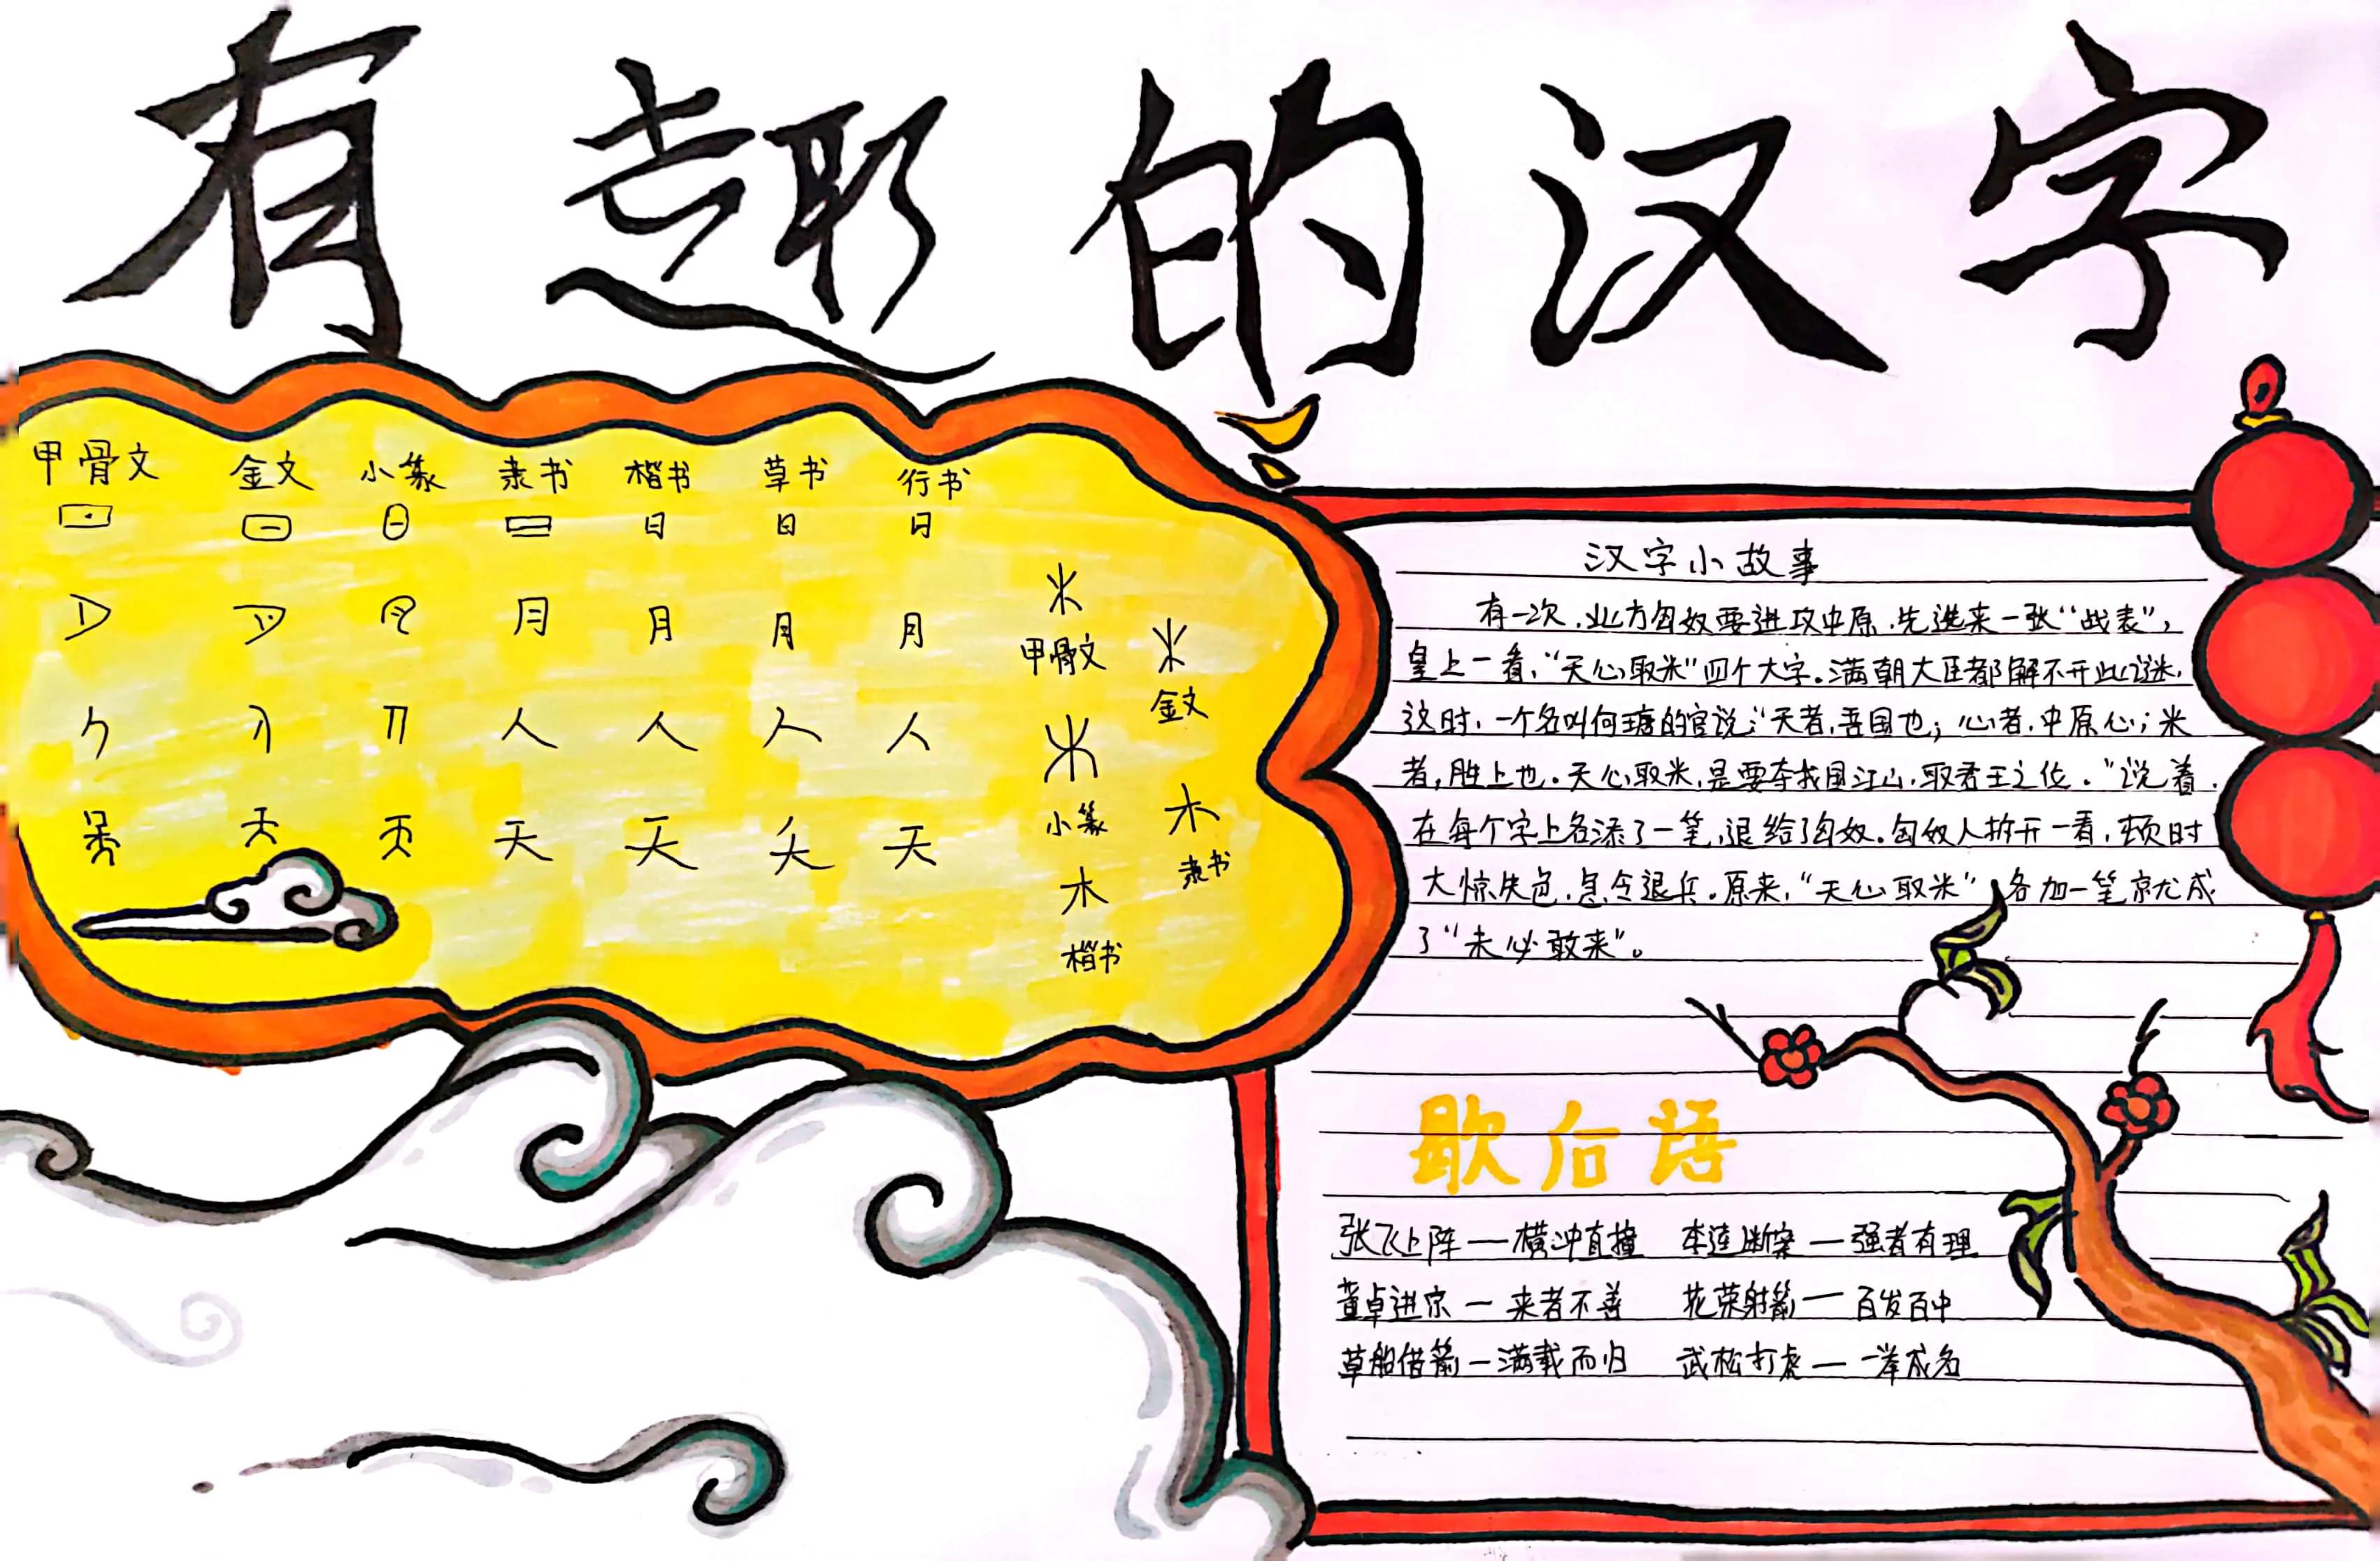 有趣的汉字
甲骨文 金文 小篆 隶书 楷书 草书 行书
日 日 日 日 日 日 日
月 月 月 月 月 月 月
人 人 人 人 人 人 人
天 天 天 天 天 天 天
木
甲骨文
木
金文
木
小篆
木
隶书
木
楷书
汉字小故事
有一次,北方匈奴要进攻中原,先送来一张“战表”,
皇上一看,“天心取米”四个大字。满朝大臣都解不开此谜,
这时,一个名叫何瑭的官说:“天者,吾国也;心者,中原心;米
者,胜上也。天心取米,是要夺我国江山,取君王之位。”说着,
在每个字上各添了一笔,退给了匈奴。匈奴人拆开一看,顿时
大惊失色,急令退兵。原来,“天心取米”各加一笔就成
了“未必敢来”。
歇后语
张飞上阵——横冲直撞 李逵断案—强者有理
董卓进京—来者不善 花荣射箭—百发百中
草船借箭—满载而归 武松打虎—一举成名